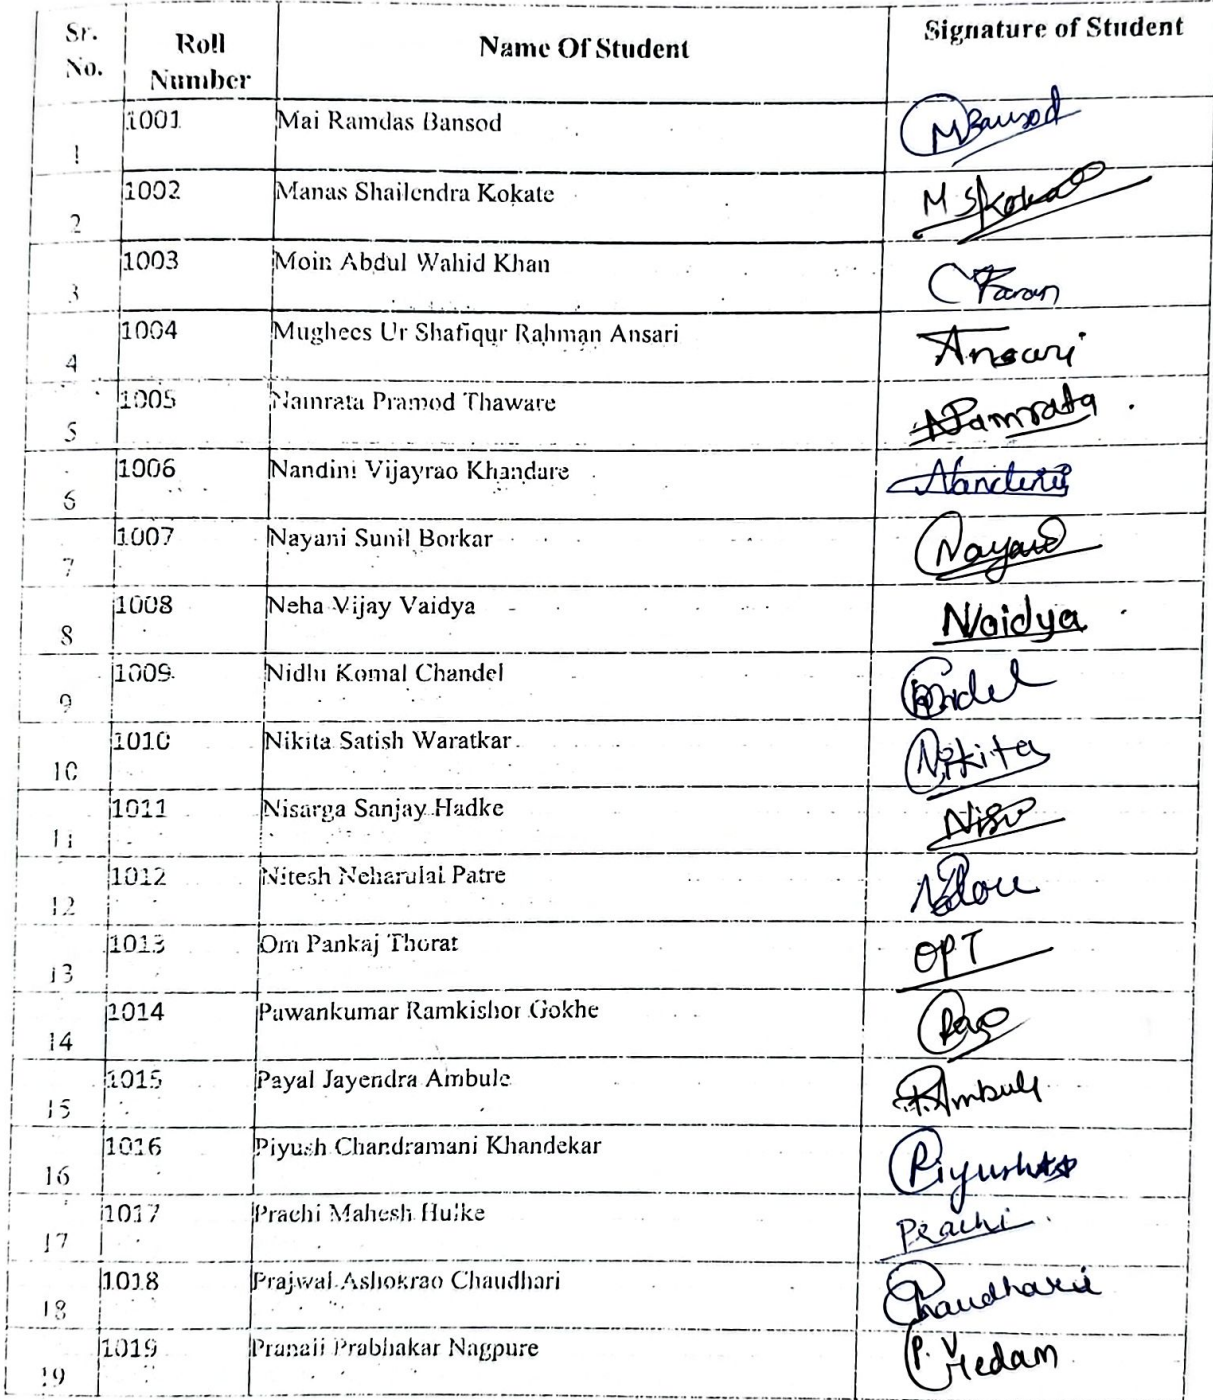 Sr. No. Roll Number Name Of Student Signature of Student
1 1001 Mai Ramdas Bansod MBansod
2 1002 Manas Shailendra Kokate M S
3 1003 Moin Abdul Wahid Khan
4 1004 Mughees Ur Shafiqur Rahman Ansari Ansari
5 1005 Namrata Pramod Thaware Namrata
6 1006 Nandini Vijayrao Khandare Nandini
7 1007 Nayani Sunil Borkar
8 1008 Neha Vijay Vaidya NVaidya
9 1009 Nidhi Komal Chandel
10 1010 Nikita Satish Waratkar Nikita
11 1011 Nisarga Sanjay Hadke
12 1012 Nitesh Neharulal Patre
13 1013 Om Pankaj Thorat OPT
14 1014 Pawankumar Ramkishor Gokhe
15 1015 Payal Jayendra Ambule P.Ambule
16 1016 Piyush Chandramani Khandekar Piyush
17 1017 Prachi Mahesh Hulke Prachi
18 1018 Prajwal Ashokrao Chaudhari Chaudhari
19 1019 Pranali Prabhakar Nagpure P. V Medam